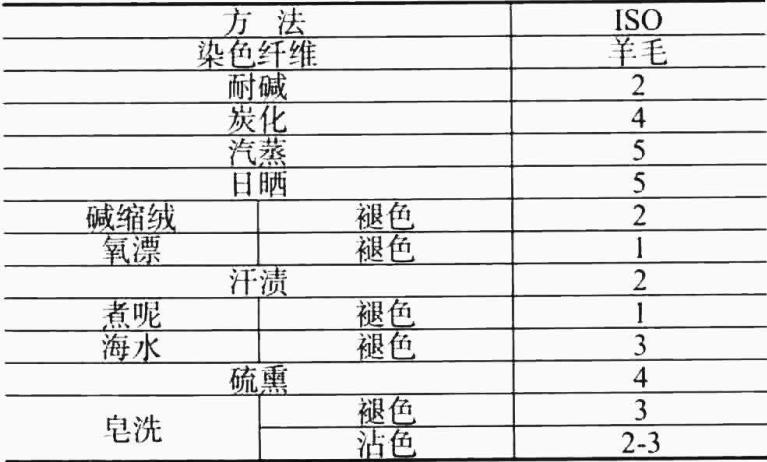 方 法 ISO
染色纤维 羊毛
耐碱 2
炭化 4
汽蒸 5
日晒 5
碱缩绒 褪色 2
氧漂 褪色 1
汗渍 2
煮呢 褪色 1
海水 褪色 3
硫熏 4
皂洗 褪色 3
沾色 2-3